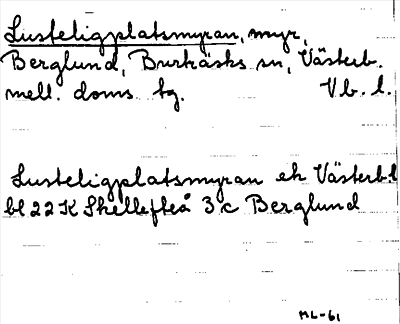 Lusteligplatsmyran, myr,
Berglund, Burträsks sn, Västerb.
mell. doms. tg. Vb. l.
Lusteligplatsmyran ek Västerb.l
bl 22 K Skellefteå 3 c Berglund
ML-61